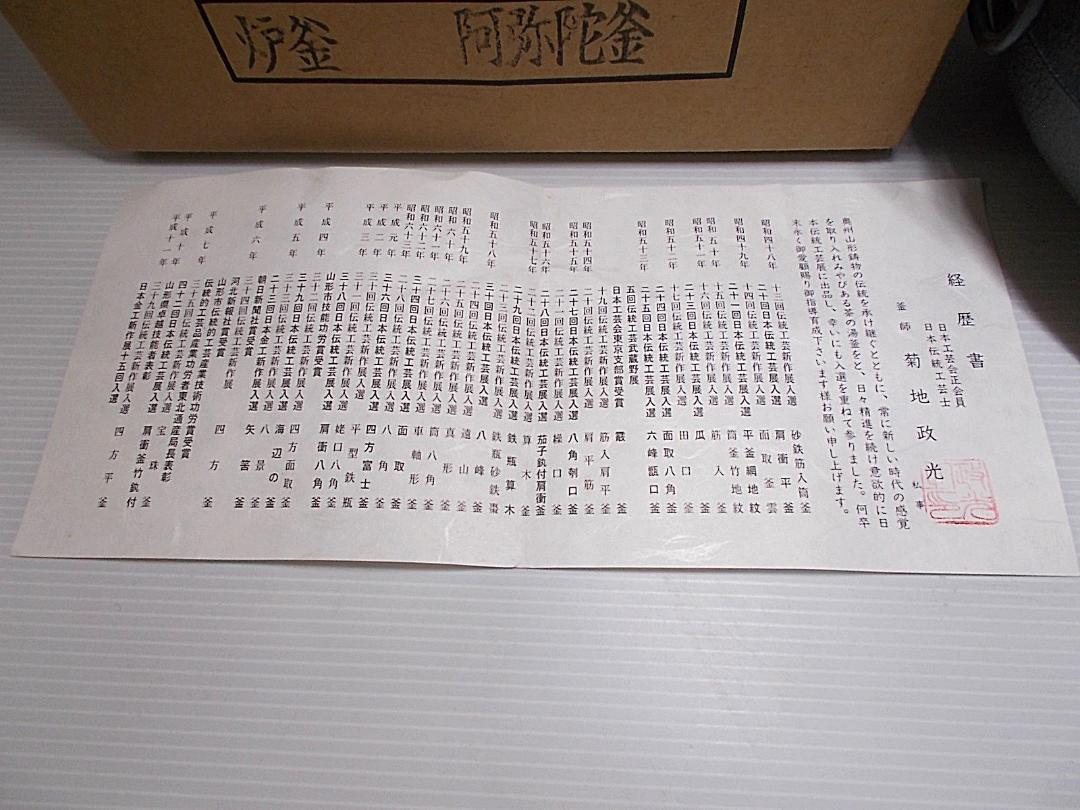 炉釜 阿弥陀釜
経歴書
日本工芸会正会員
日本伝統工芸士
釜師 菊地政光
私事
奥州山形鋳物の伝統を承け継ぐとともに、常に新しい時代の感覚
を取り入れみやびある茶の湯釜をと、日々精進を続け意欲的に日
本伝統工芸展に出品し、幸いにも入選を重ねて参りました。何卒
末永く御愛顧賜り御指導育成下さいます様お願い申し上げます。
昭和四十八年 十三回伝統工芸新作展入選 砂鉄筋入筒釜
二十回日本伝統工芸展入選 面取釜 雲
昭和四十九年 十四回伝統工芸新作展入選 肩衝平釜
二十一回日本伝統工芸展入選 平釜網地紋
昭和五十年 十五回伝統工芸新作展入選 筒釜竹地紋
昭和五十一年 十六回伝統工芸新作展入選 筋入釜
二十三回日本伝統工芸展入選 瓜釜
昭和五十二年 十七回伝統工芸新作展入選 田口釜
二十四回日本伝統工芸展入選 面取八角釜
昭和五十三年 二十五回日本伝統工芸展入選 六峰甑口釜
五回伝統工芸武蔵野展
日本工芸会東京支部賞受賞 霰釜
昭和五十四年 十九回伝統工芸新作展入選 筋入肩平釜
昭和五十五年 二十回伝統工芸新作展入選 肩平筋釜
二十七回日本伝統工芸展入選 八角刳口釜
昭和五十六年 二十一回伝統工芸新作展入選 繰口釜
二十八回日本伝統工芸展入選 茄子鐶付肩衝釜
昭和五十七年 二十二回伝統工芸新作展入選 算木釜
二十九回日本伝統工芸展入選 鉄瓶算木
昭和五十八年 三十回日本伝統工芸展入選 鉄瓶砂鉄棗
昭和五十九年 二十四回伝統工芸新作展入選 八峰釜
昭和六十年 二十五回伝統工芸新作展入選 遠山釜
昭和六十一年 二十六回伝統工芸新作展入選 真形釜
昭和六十二年 二十七回伝統工芸新作展入選 筒八角釜
昭和六十三年 三十四回日本伝統工芸展入選 車軸形釜
平成元年 二十八回伝統工芸新作展入選 面取釜
平成二年 三十回伝統工芸新作展入選 八角釜
平成三年 三十一回伝統工芸新作展入選 四方富士釜
三十八回日本伝統工芸展入選 平型鉄瓶
山形市技能功労賞受賞
平成四年 三十二回伝統工芸新作展入選 姥口八角釜
三十九回日本伝統工芸展入選 肩衝八角釜
平成五年 三十三回伝統工芸新作展入選 四方面取釜
二十三回日本金工新作展入選 海辺の釜
朝日新聞社賞受賞
平成六年 三十四回伝統工芸新作展入選 八景釜
河北新報社賞受賞 矢筈釜
山形市伝統的工芸新作展
平成七年 伝統的工芸品産業技術功労賞受賞 四方釜
三十五回伝統工芸新作展入選
四十二回日本伝統工芸展入選 宝珠釜
平成十年 山形県卓越技能者表彰
平成十一年 三十九回伝統工芸新作展入選 肩衝釜竹鐶付
日本金工新作展十五回入選 四方平釜